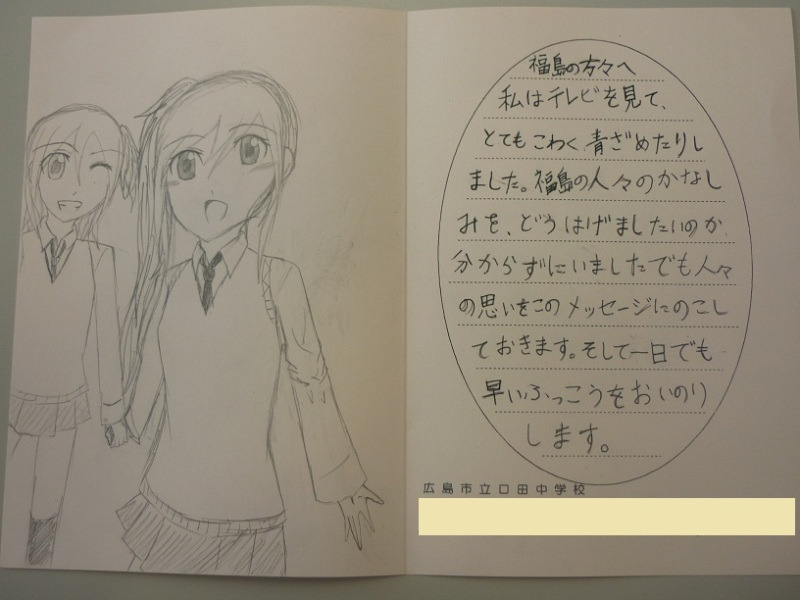 福島の方々へ
私はテレビを見て、
とてもこわく青ざめたりし
ました。福島の人々のかなし
みを、どうはげましたいのか、
分からずにいましたでも人々
の思いをこのメッセージにのこし
ておきます。そして一日でも
早いふっこうをおいのり
します。
広島市立口田中学校